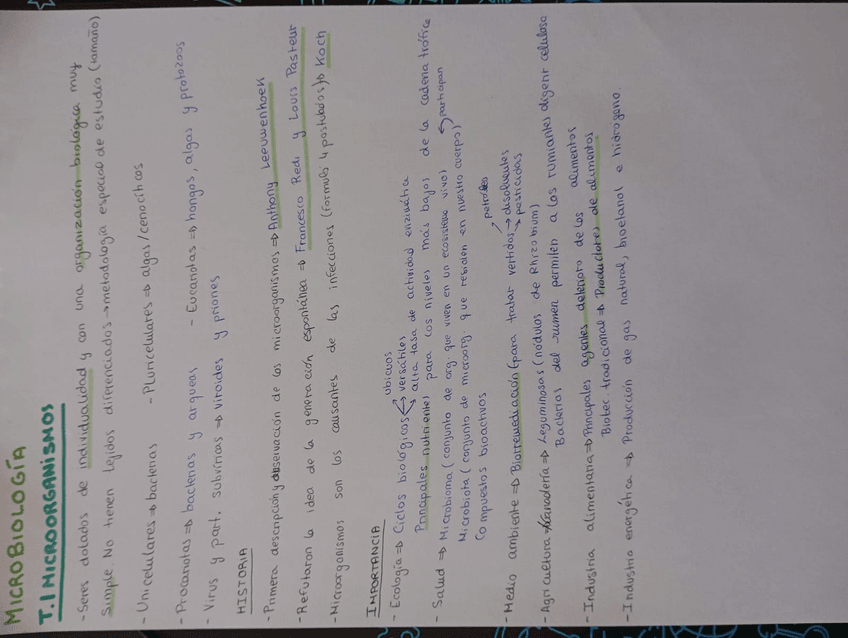 MICROBIOLOGÍA
T.1 MICROORGANISMOS
- Seres dotados de individualidad y con una organización biológica muy
simple. No tienen tejidos diferenciados → metodología especial de estudio (tamaño)
- Unicelulares ⇒ bacterias - Pluricelulares ⇒ algas/cenocíticos
- Procariotas ⇒ bacterias y arqueas - Eucariotas ⇒ hongos, algas y protozoos
- Virus y part. subvíricas ⇒ viroides y priones
HISTORIA
- Primera descripción y observación de los microorganismos ⇒ Anthony Leeuwenhoek
- Refutaron la idea de la generación espontánea ⇒ Francesco Redi y Louis Pasteur
- Microorganismos son los causantes de las infecciones (formuló 4 postulados) ⇒ Koch
IMPORTANCIA
ubicuos
- Ecología ⇒ Ciclos biológicos → versátiles
→ alta tasa de actividad enzimática
Principales nutrientes para los niveles más bajos de la cadena trófica
- Salud ⇒ Microbioma (conjunto de org. que viven en un ecosistema vivo)
Microbiota (conjunto de microorg. que residen en nuestro cuerpo) participan
Compuestos bioactivos
petróleo
- Medio ambiente ⇒ Biorremediación (para tratar vertidos → disolventes
→ pesticidas
- Agricultura y ganadería ⇒ Leguminosas (nódulos de Rhizobium)
Bacterias del rumen permiten a los rumiantes digerir celulosa
- Industria alimentaria ⇒ Principales agentes deterioro de los alimentos
Biotec. tradicional ⇒ Productores de alimentos
- Industria energética ⇒ Producción de gas natural, bioetanol e hidrógeno